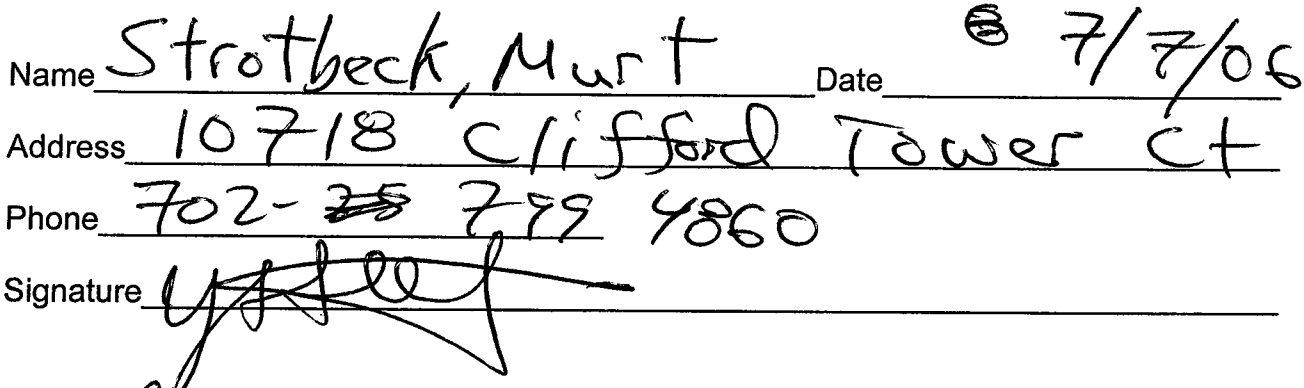 Name Strotbeck, Murt Date 7/7/06
Address 10718 Clifford Tower Ct
Phone 702- 799 4860
Signature